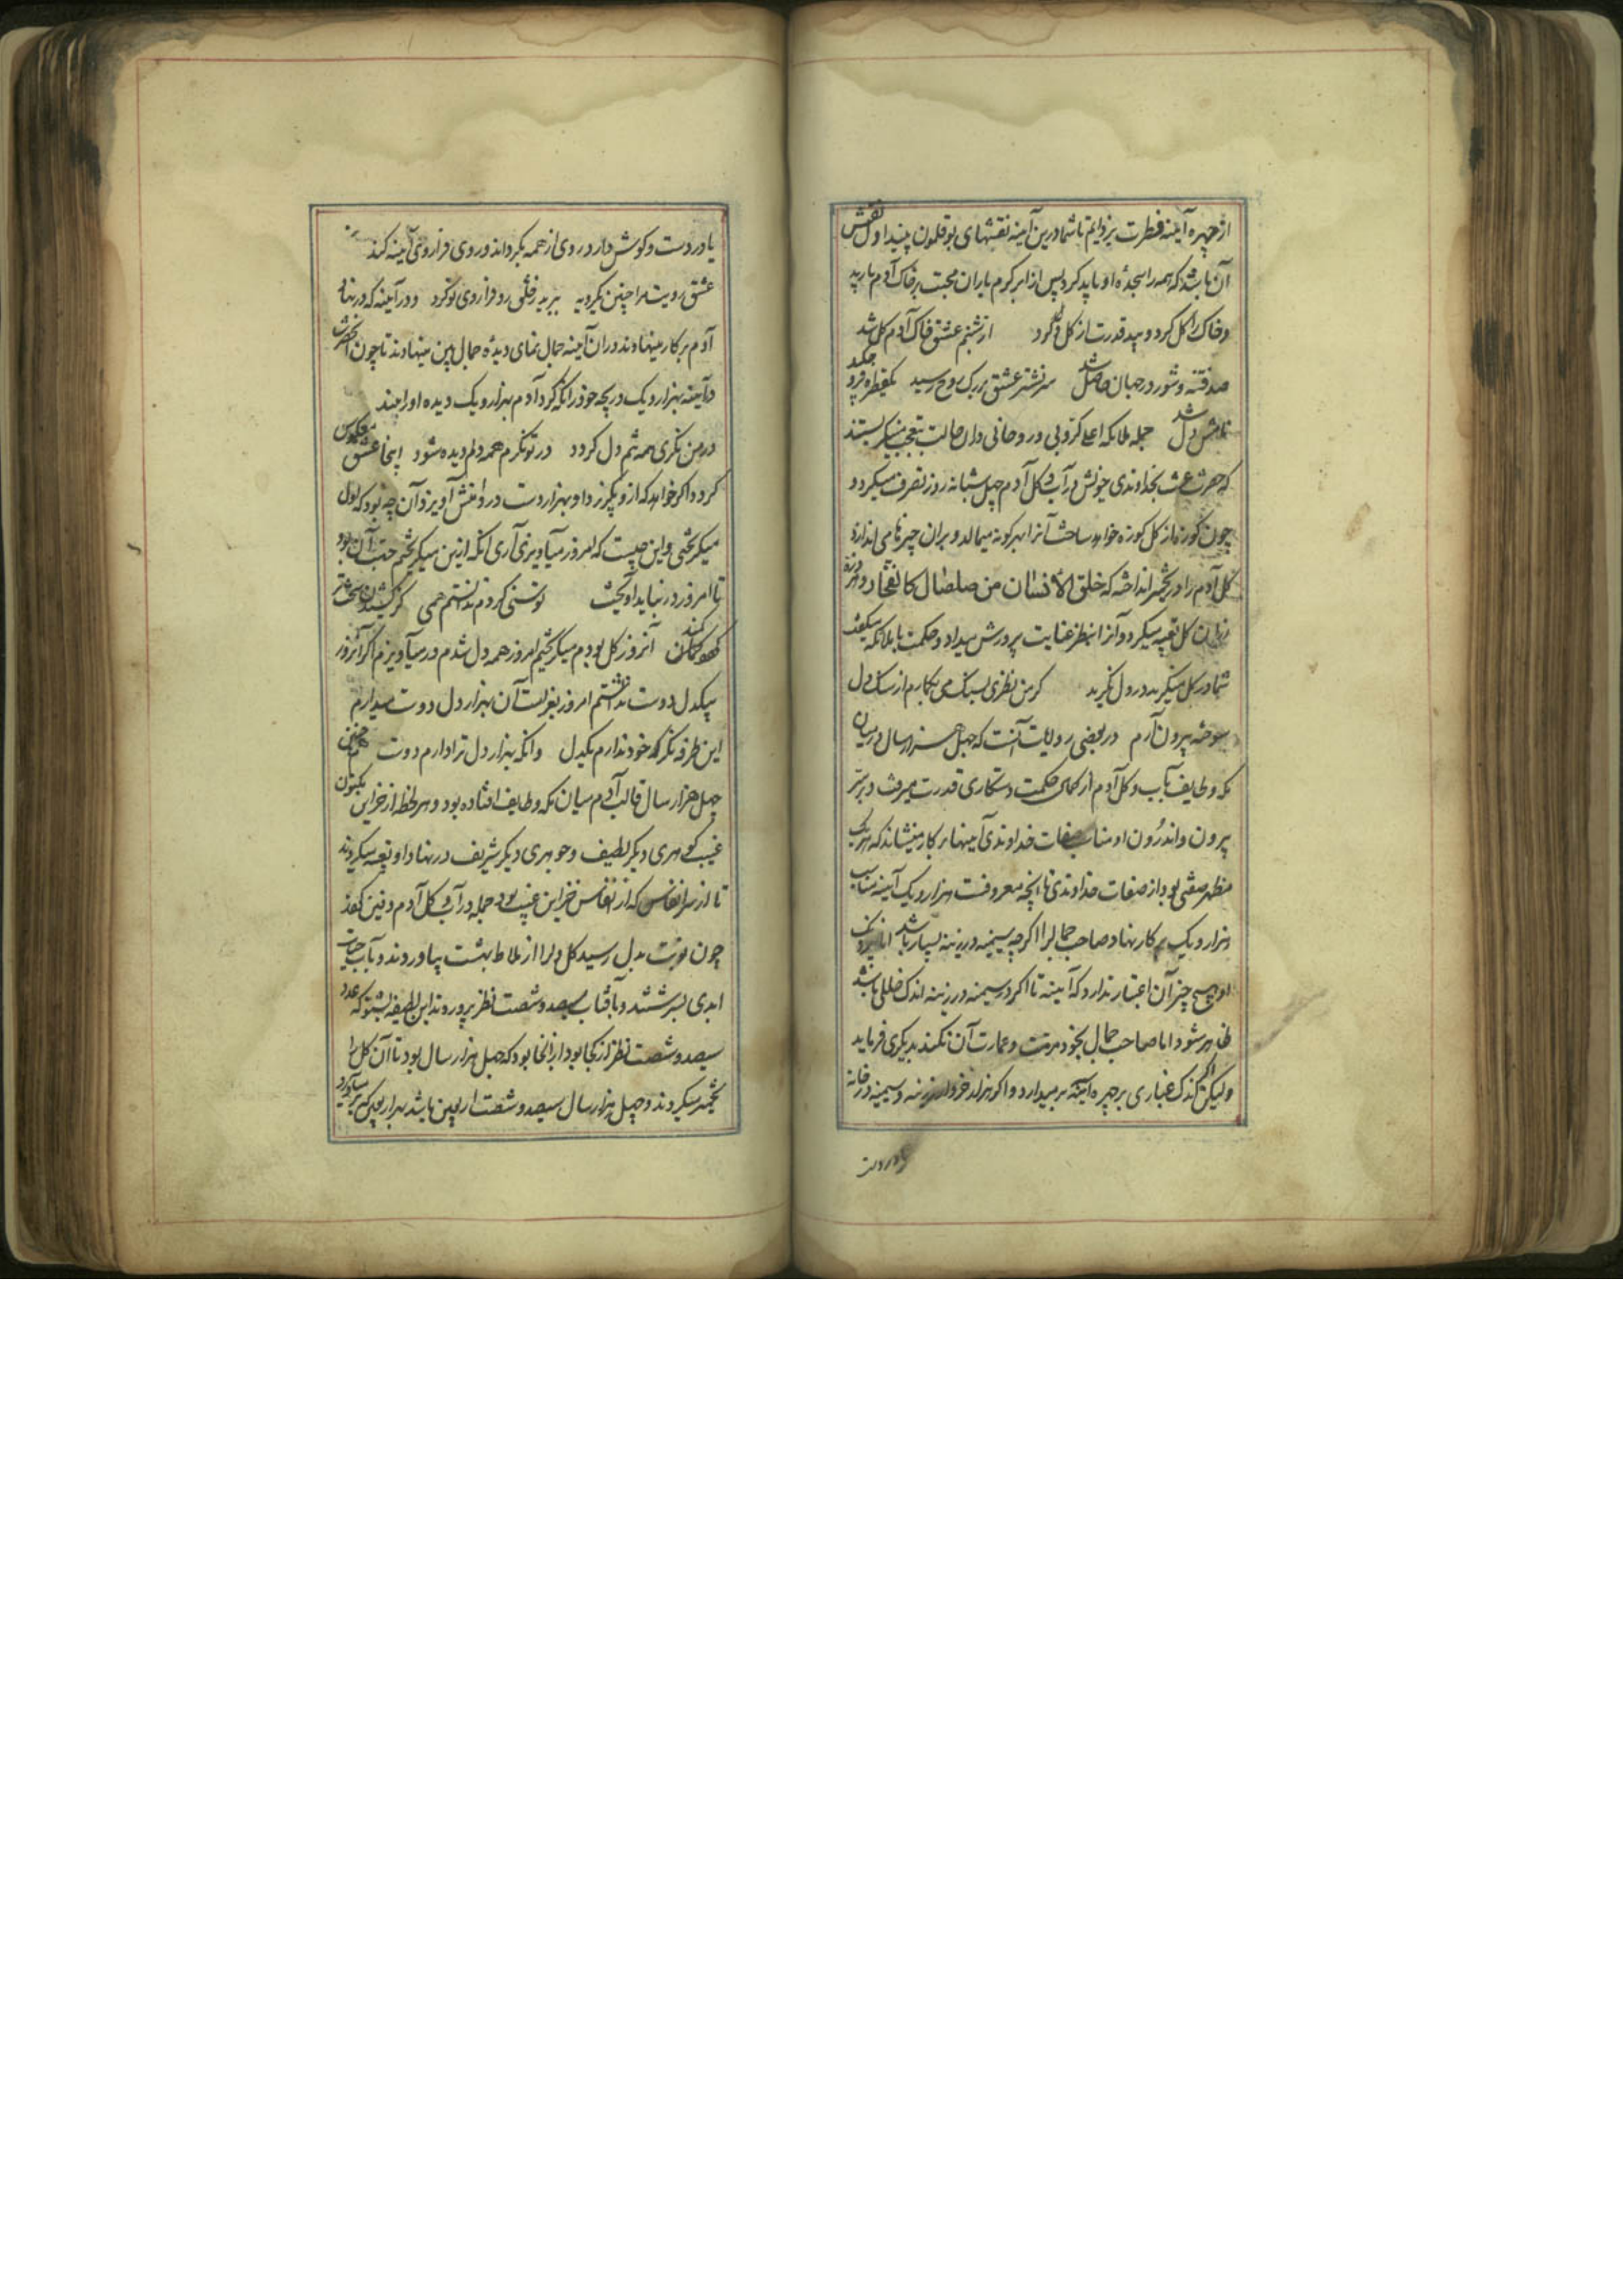 از چهره آینه فطرت بزدایم تا شما درین آینه نقشهای بوقلمون بینید اول نقش
آن باشد که همه را سجده او باید کرد پس از ابر کرم باران محبت بر خاک آدم بارید
و خاک را گل کرد و بید قدرت از گل دل کرد از شبنم عشق خاک آدم گل شد
صد فتنه و شور در جهان حاصل شد سر نشتر عشق بر رگ روح رسید یکقطره فرو چکید
نامش دل شد جمله ملائکه اعلی کروبی و روحانی دران حالت بتعجب مینگریستند
که حضرت عزت بخداوندی خویش در آب و گل آدم چهل شبانه روز تصرف میکرد و
چون کوزه گر از گل کوزه خواهد ساخت آنرا بهر گونه میمالد و بران چیزها می اندازد
گل آدم را در تخمیر انداخته که خلق الانسان من صلصال کالفخار و در هر ذره
ازان گل تعبیه میکرد و آنرا بنظر عنایت پرورش میداد و حکمت با ملائکه میگفت
شما در گل منگرید در دل نگرید گر من نظری بسنگ می بگمارم از سنگ دل
سوخته بیرون آرم در بعضی روایات آنست که چهل هزار سال در میان
مکه و طایف بآب و گل آدم از کمال حکمت دستکاری قدرت میرفت و بر
بیرون و اندرون او مناسب صفات خداوندی آینها بر کار مینشاند که هر یک
مظهر صفتی بود از صفات خداوندی تا آنچه معروفست هزار و یک آینه مناسب
هزار و یک بر کار نهاد صاحب جمال را اگر چه سیمینه و زرینه بسیار باشد اما نزدیک
او هیچ چیز آن اعتبار ندارد که آینه تا اگر در سیمینه و زرینه اندک خللی باشد
ظاهر شود اما صاحب جمال بخود مرمت و عمارت آن نکند بدیگری فرماید
ولیکن اگر اندک غباری بر چهره آینه بر میدارد و اگر هزار خروار زرینه و سیمینه در خانه
یا در دست
یا در دست و گوش دارد روی از همه بگرداند و روی فرا روی آینه کند
عشق رویت مرا چنین یکرویه ببرید ز خلق رو فرا روی تو کرد و در آینه که در نهاد
آدم بر کار مینهادند دران آینه جمال نمای دیده جمال بین مینهادند تا چون آنحضرت
در آینه بهزار و یک دریچه خود را نگه کرد آدم بهزار و یک دیده او را بیند
در من نگری همه تنم دل گردد در تو نگرم همه دلم دیده شود اینجا عشق معکوس
گردد اگر خواهد که ازو بگریزد او بهزار دست در دامنش آویزد آن چه بود که اول
میگریختی و این چیست که امروز میآویزی آری آنکه ازین میگریختم جهت آن بود
تا امروز در نباید آویخت توسنی کردم ندانستم همی کز کشیدن سخت تر
گردد کمند آنروز گل بودم میگریختم امروز همه دل شدم در میآویزم اگر آنروز
بیکدل دوست نداشتم امروز بغرامت آن بهزار دل دوست میدارم
این طرفه نگر که خود ندارم یکدل وانگه بهزار دل ترا دارم دوست همچنین
چهل هزار سال قالب آدم میان مکه و طایف افتاده بود و هر لحظه از خزاین مکنون
غیب گوهری دیگر لطیف و جوهری دیگر شریف در نهاد او تعبیه میکردند
تا از هر نفایس که از نفایس خزاین غیب بود جمله در آب و گل آدم دفین کردند
چون نوبت بدل رسید گل دل را از ملاط بهشت بیاوردند و بآب حیات
ابدی بسرشتند و بآفتاب سیصد و شصت نظر بپروردند این لطیفه بشنو که عدد
سیصد و شصت نظر از کجا بود ازانجا بود که چهل هزار سال بود تا آن گل را
تخمیر میکردند و چهل هزار سال سیصد و شصت اربعین باشد بهر اربعین که بر میآورد